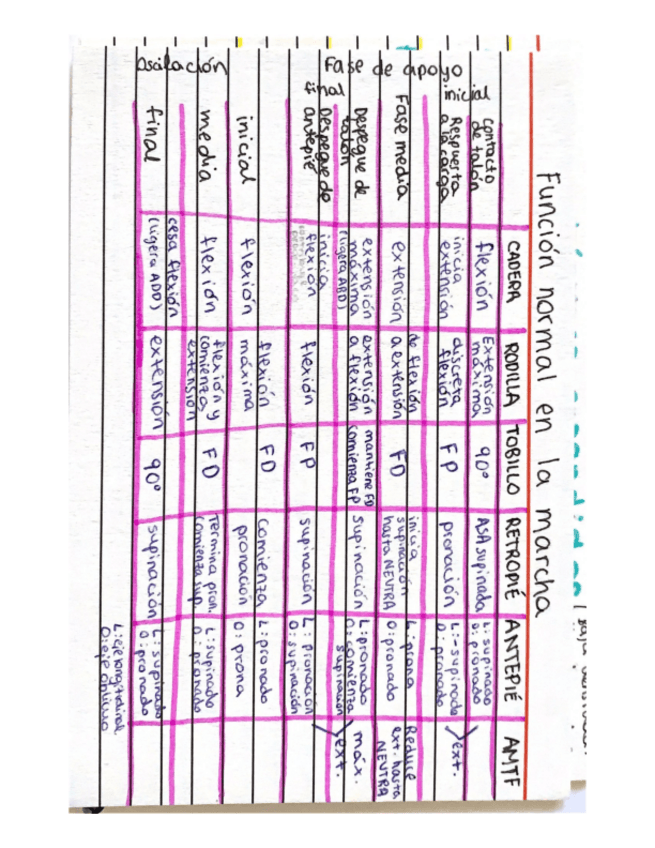 Función normal en la marcha
CADERA RODILLA TOBILLO RETROPIÉ ANTEPIÉ AMTF
Fase de apoyo
inicial
Contacto
de talón
flexión
Extensión
máxima
90°
ASA supinada
L: supinado
O: pronado
Respuesta
a la carga
inicia
extensión
discreta
flexión
FP
pronación
L: supinado
O: pronado
ext.
Fase media
extensión
de flexión
a extensión
FD
inicia
supinación
hasta NEUTRA
L: prona
O: pronado
Reduce
ext. hasta
NEUTRA
final
Despegue de
talón
extensión
máxima
(ligera ABD)
extensión
a flexión
mantiene FD
comienza FP
supinación
L: pronado
O: comienza
supinación
máx.
ext.
Despegue de
antepié
inicia
flexión
flexión
FP
supinación
L: pronación
O: supinación
Oscilación
inicial
flexión
flexión
máxima
FD
comienza
pronación
L: pronado
O: prona
media
flexión
flexión y
comienza
extensión
FD
Termina pron.
comienza sup.
L: supinado
O: pronado
final
cesa flexión
(ligera ADD)
extensión
90°
supinación
L: supinado
O: pronado
L: eje longitudinal
O: eje oblicuo